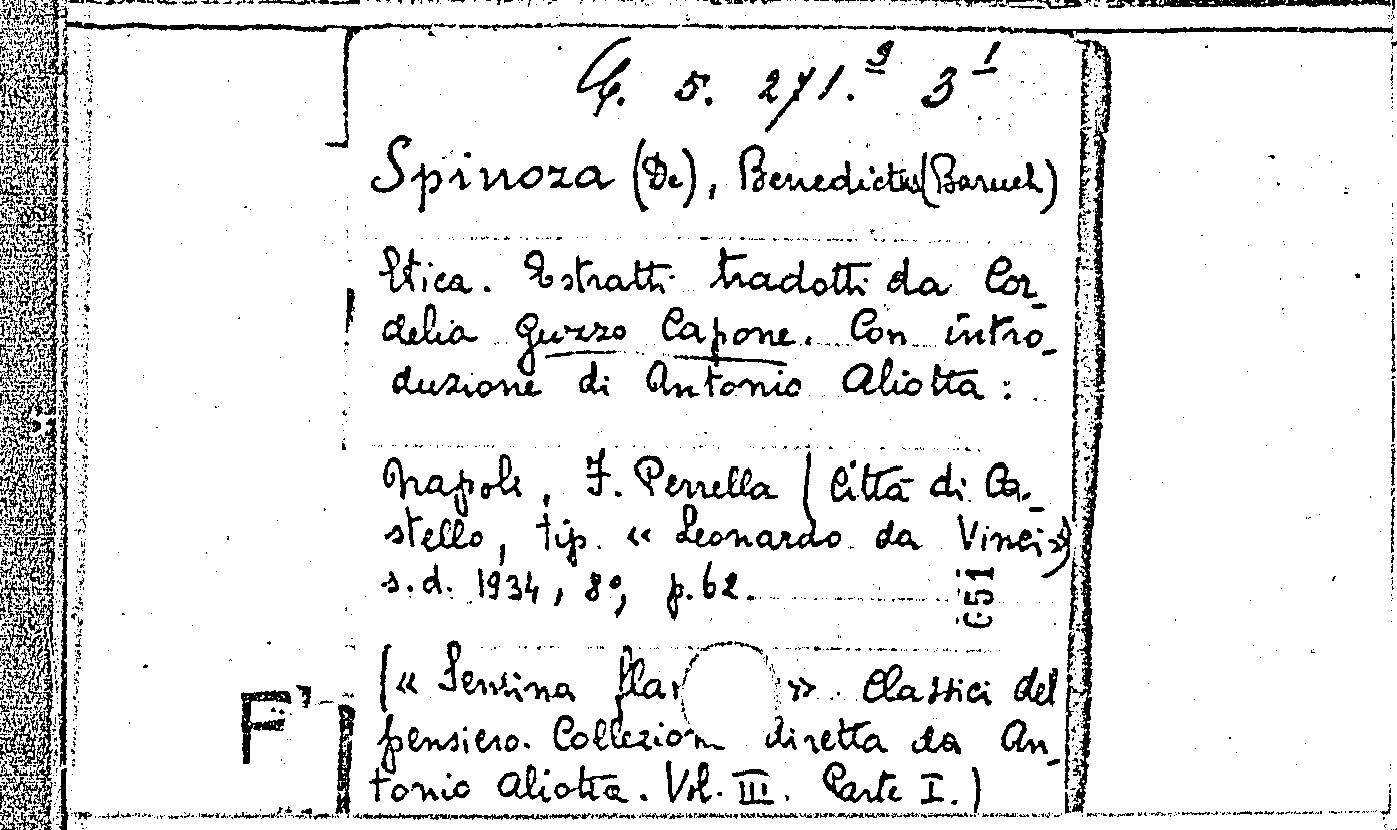 G. 5. 271.9 3 1
Spinoza (De), Benedictus (Baruch)
Etica. Estratti tradotti da Cor-
delia Guzzo Capone. Con intro-
duzione di Antonio Aliotta:
Napoli, F. Perrella (Città di Ca-
stello, tip. « Leonardo da Vinci»)
s.d. 1934, 8º, p. 62.
651
(« » Classici del
pensiero. Collezion diretta da An-
tonio Aliotta. Vol. III. Parte I.)
F